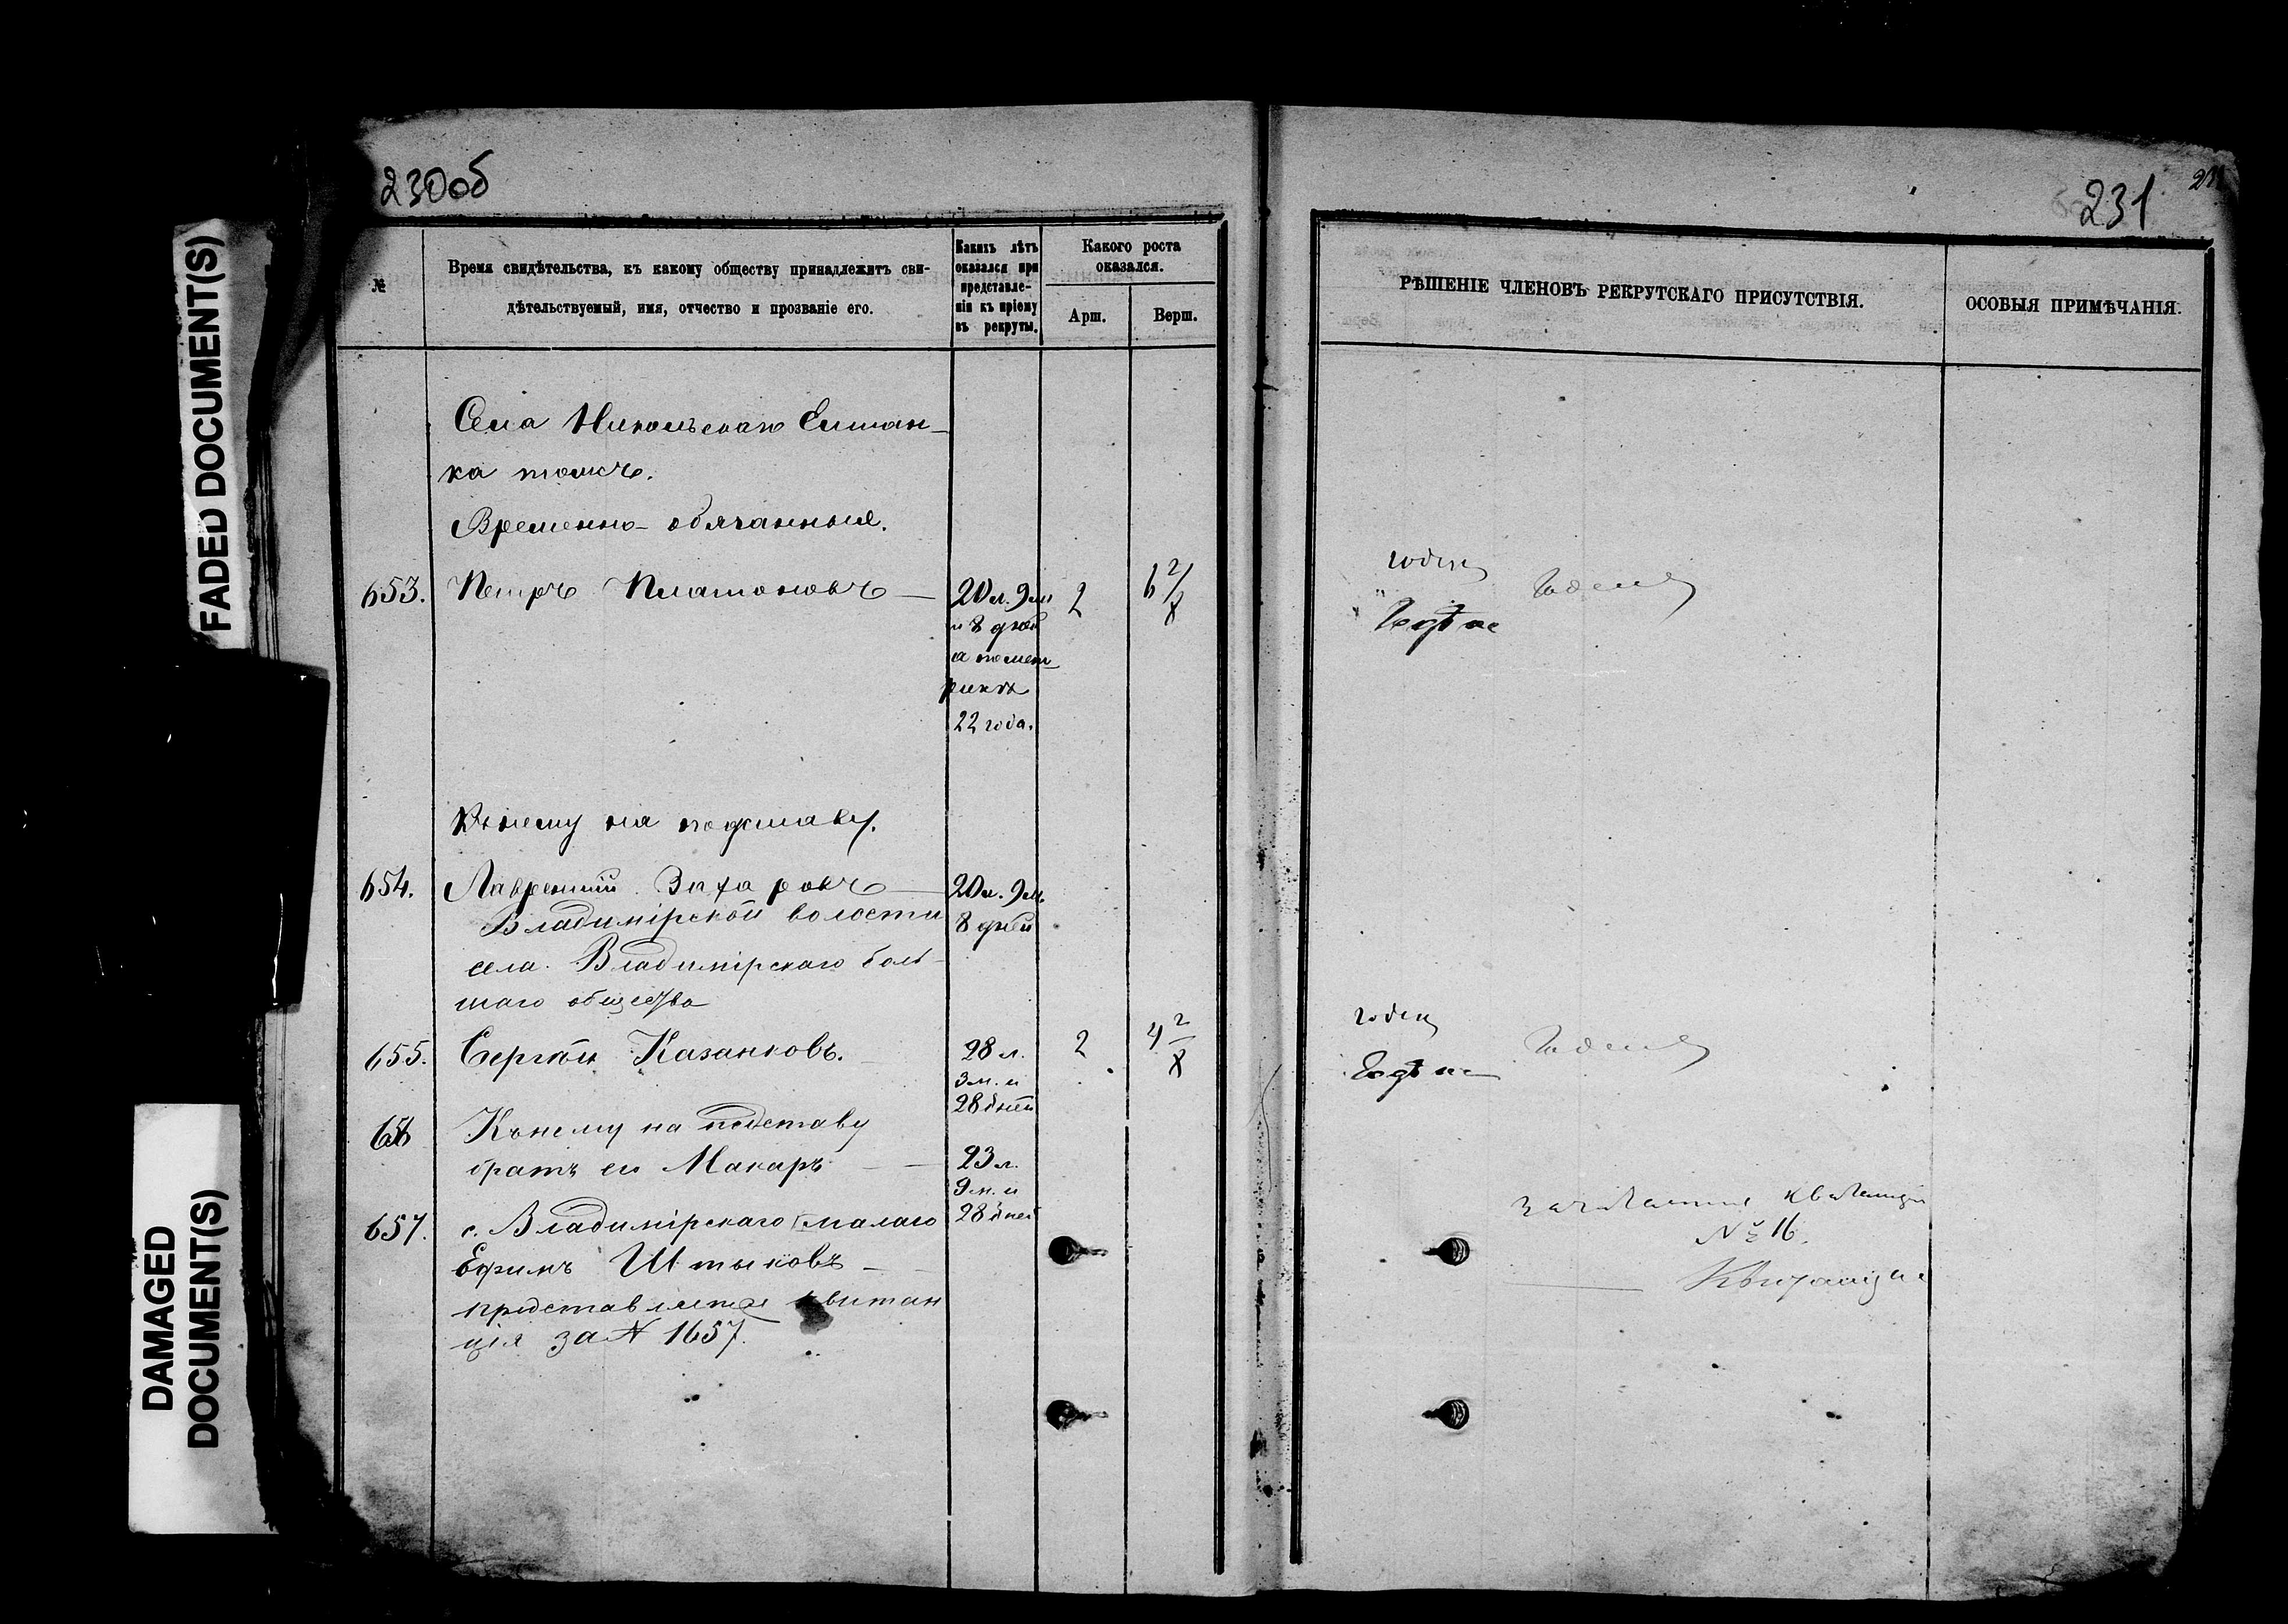 230об
№
Время свидѣтельства, къ какому обществу принадлежитъ сви-
дѣтельствуемый, имя, отчество и прозваніе его.
Какихъ лѣтъ
оказался при
представле-
ніи къ пріему
въ рекруты.
Какого роста
оказался.
Арш.
Верш.
Села Никольскаго Елшан-
ка тожъ.
Временно-обязанные.
653.
Петръ Платоновъ
20 л. 9 м
и 8 дней
а по мет
рикѣ
22 года.
2
6 2/8
Къ нему на подставу.
654.
Лаврентій Захаровъ
20 л. 9 м.
8 дней
Владимірской волости
села Владимірскаго боль-
шаго общества
655.
Сергѣй Казанковъ.
28 л.
3 м. и
28 дней
2
4 2/8
656
Къ нему на подставу
братъ его Макаръ
23 л.
9 м. и
28 дней
657.
с. Владимірскаго малаго
Ефимъ Штыковъ
представляется квитан
ція за № 1657.
231
РѢШЕНІЕ ЧЛЕНОВЪ РЕКРУТСКАГО ПРИСУТСТВІЯ.
ОСОБЫЯ ПРИМѢЧАНІЯ.
годенъ
Годенъ
годенъ
Годенъ
№ 16.
Квитанція
FADED DOCUMENT(S)
DAMAGED
DOCUMENT(S)